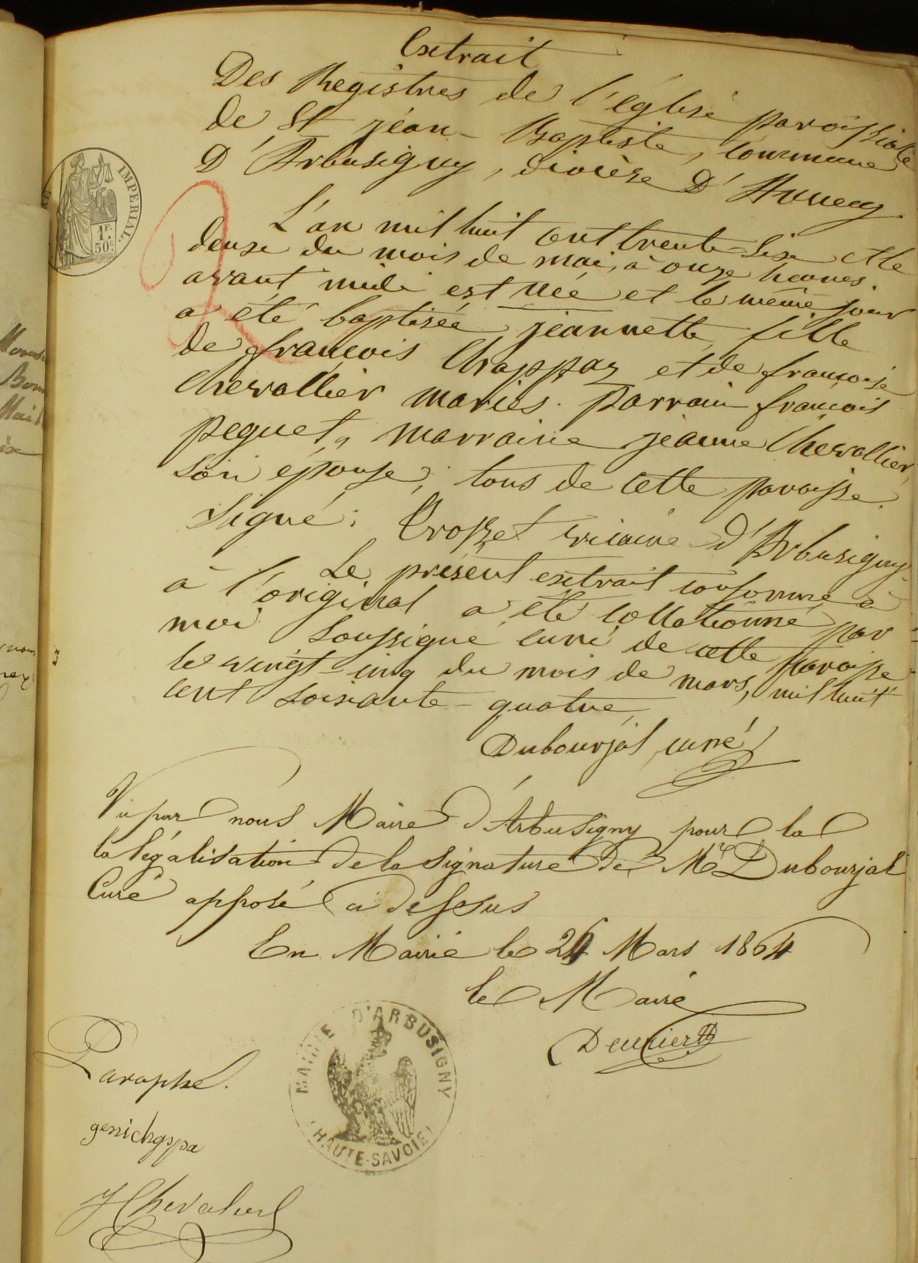 Extrait
Des Registres de l'église paroissiale
de St jean-Baptiste, commune
D'Arbusigny, diocèse D'Annecy
L'an mil huit cent trente-six et le
deuse du mois de mai, à onze heures
avant midi est née et le même jour
a été baptisée jeannette, fille
de françois Chappaz et de françoise
Chevallier mariés. Parrain françois
Peguet, marraine jeanne Chevallier,
son épouse, tous de cette paroisse.
Signé: Croset vicaire d'Arbusigny
Le présent extrait conforme
à l'original a été collationné par
moi soussigné curé de cette paroisse
le vingt-cinq du mois de mars, mil huit
cent soixante-quatre
Dubourjal, curé
Vu par nous Maire d'Arbusigny pour la
la légalisation de la signature de Mr Dubourjal
Curé apposé ci dessus
En Mairie le 26 Mars 1864
le Maire
MAIRIE D'ARBUSIGNY
(HAUTE-SAVOIE)
Paraphé.
J Chevalier
IMPERIAL.
1F
50C
3